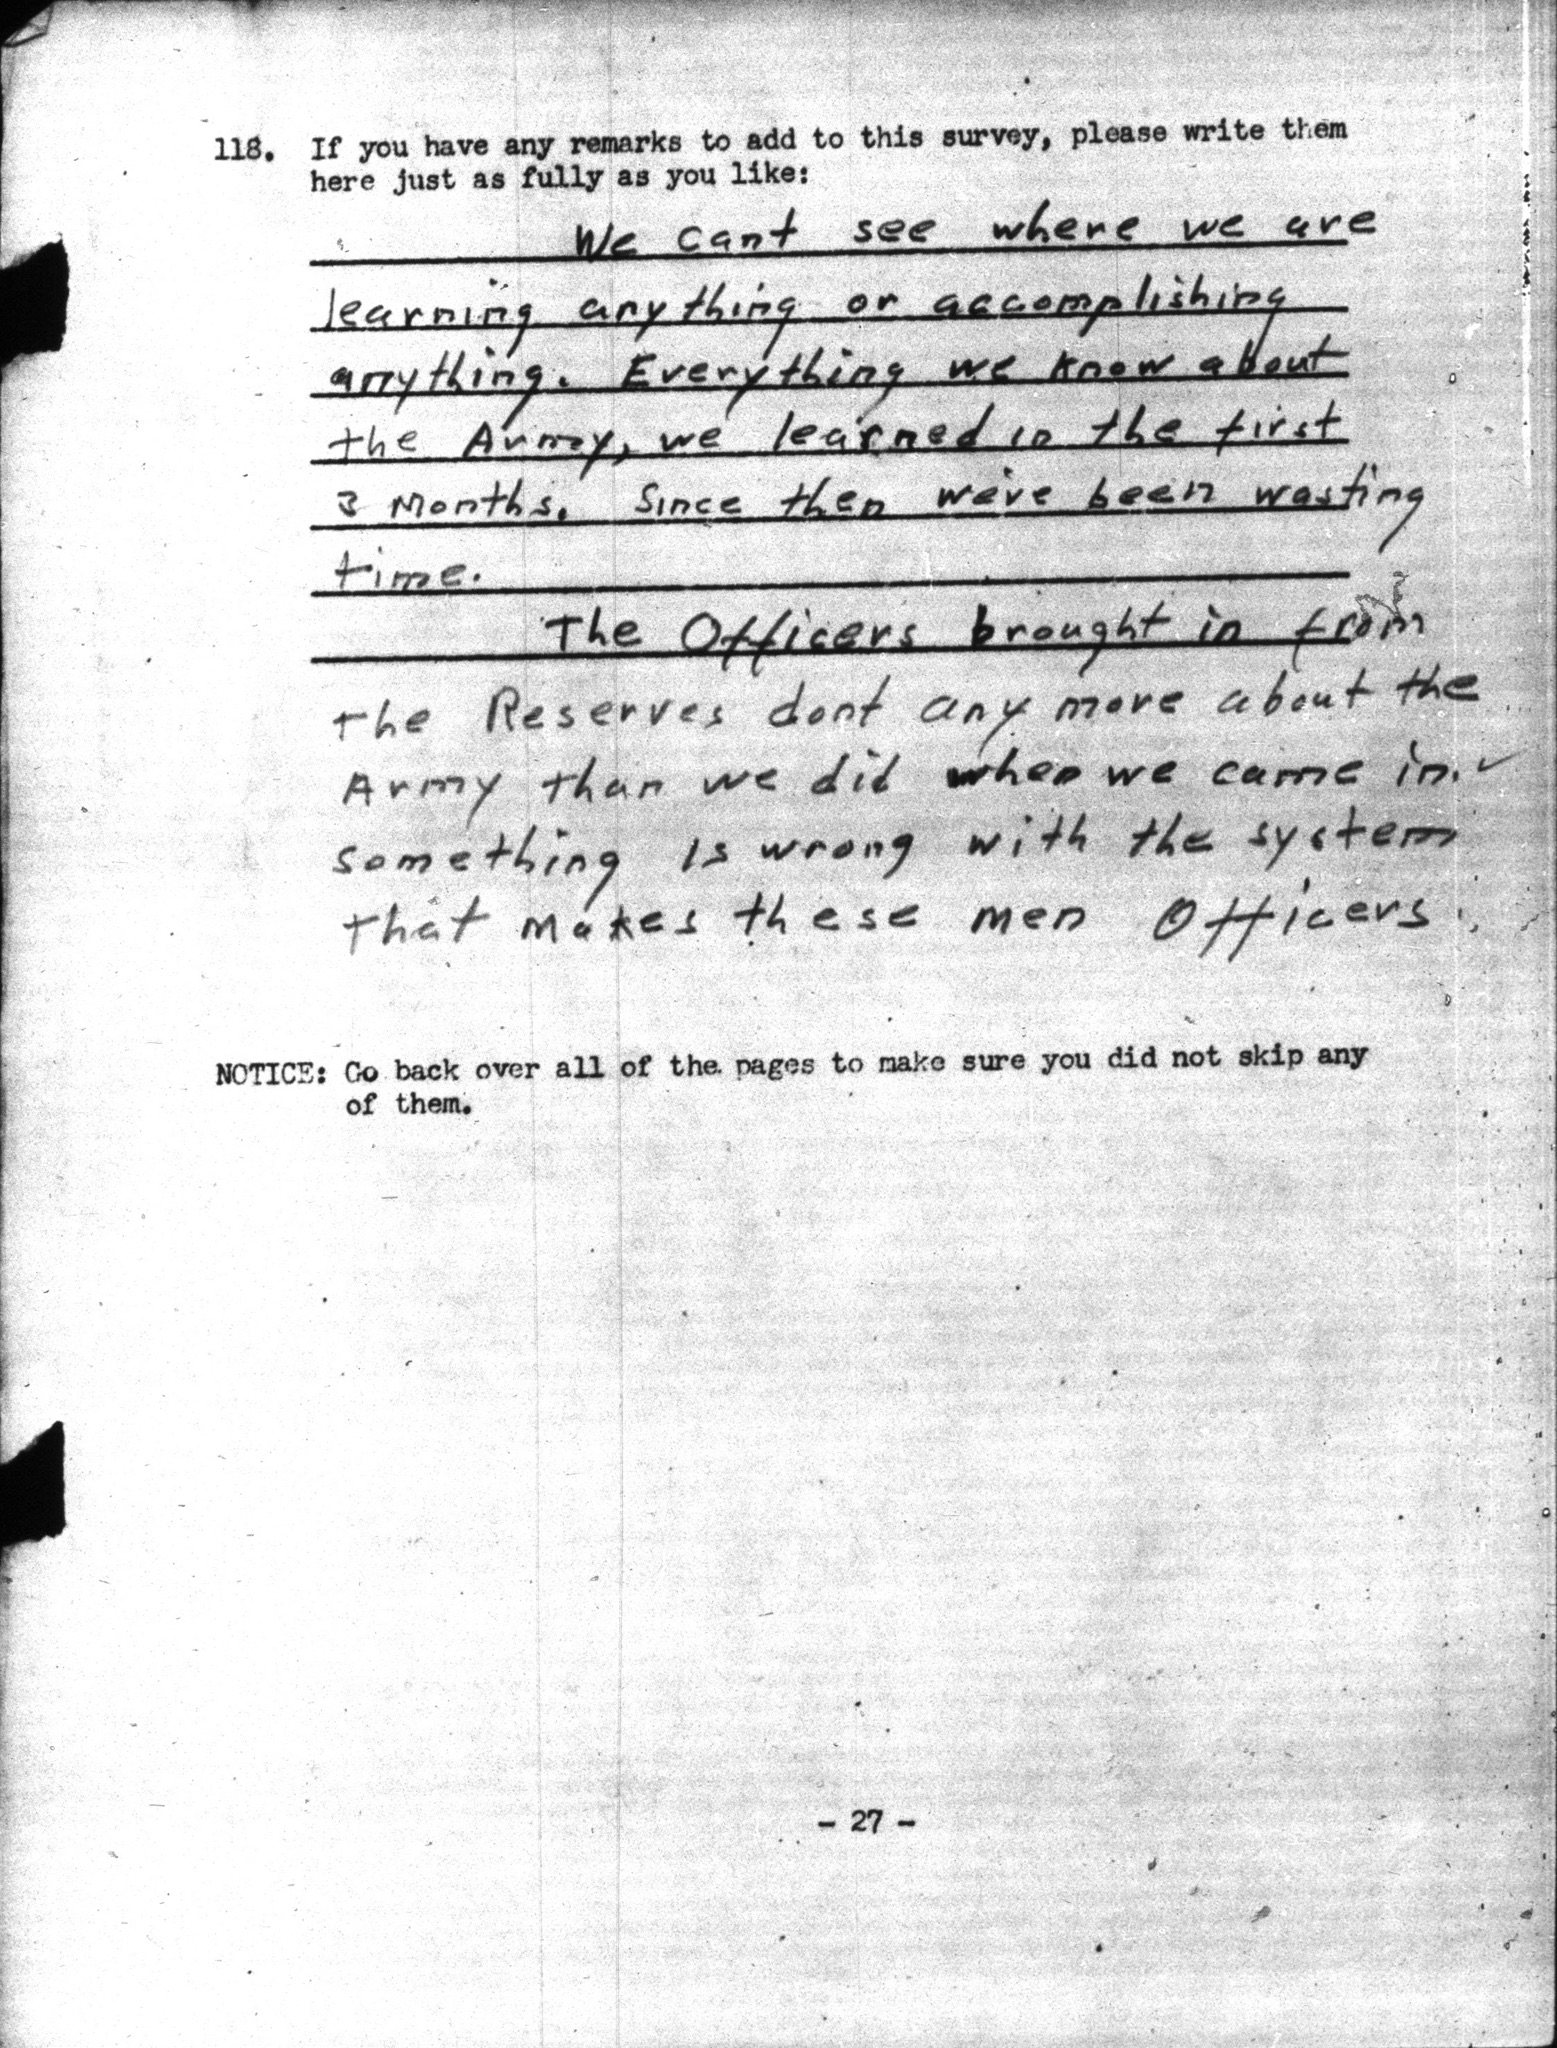 118. If you have any remarks to add to this survey, please write them
here just as fully as you like:
We cant see where we are
learning anything or accomplishing
anything. Everything we know about
the Army, we learned in the first
3 Months. Since then we've been wasting
time.
The Officers brought in from
the Reserves dont any more about the
Army than we did when we came in.
something is wrong with the system
that makes these men Officers.
NOTICE: Go back over all of the pages to make sure you did not skip any
of them.
- 27 -